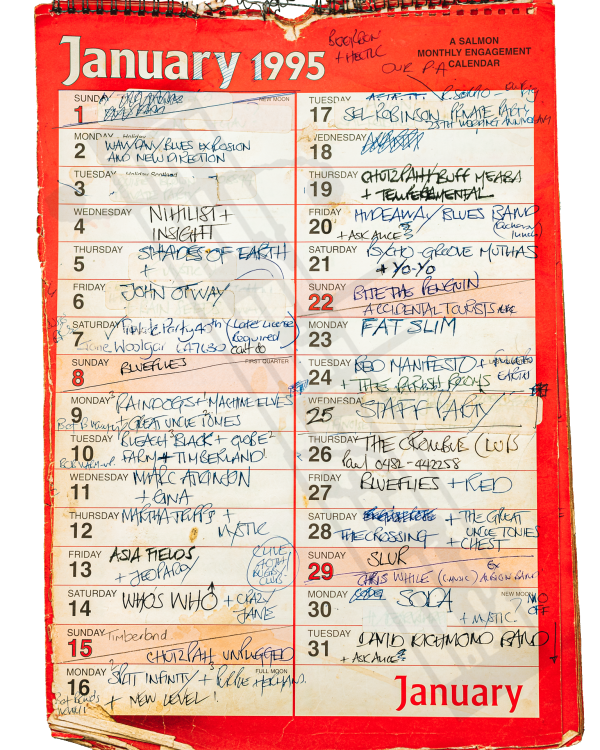 January 1995
BOURBON
+ HECTIC
OUR P.A.
A SALMON
MONTHLY ENGAGEMENT
CALENDAR
SUNDAY
1
NEW MOON
MONDAY Holiday
2
WAW/PAW/BLUES EXPLOSION
AND NEW DIRECTION
TUESDAY Holiday Scotland
3
WEDNESDAY
4
NIHILIST +
INSIGHT
THURSDAY
5
SHADES OF EARTH
+
FRIDAY
6
JOHN OTWAY
SATURDAY
7
Party 40th (Late License
Required)
Woolgar (47630) can't do
SUNDAY
8
BLUEFLIES
FIRST QUARTER
MONDAY
9
RAINDOGS + MACHINE ELVES
+ GREAT UNCLE TONIES
TUESDAY
10
BLEACH BLACK + GLOBE
FARM + TIMBERLAND
WEDNESDAY
11
MARC ATKINSON
+ GINA
THURSDAY
12
MARTHA TRIPPS +
MYSTIC
FRIDAY
13
ASIA FIELDS
+ JEOPARDY
CLIVE
40TH
CLUB
SATURDAY
14
WHO'S WHO + CRAZY
JANE
SUNDAY
15
Timberland
CHUTZPAH UNPLUGGED
MONDAY
16
FULL MOON
SPLIT INFINITY + PURPLE
+ NEW LEVEL!
TUESDAY
17
SEL ROBINSON PRIVATE PARTY
25TH WEDDING ANNIVERSARY
WEDNESDAY
18
THURSDAY
19
CHUTZPAH/BUFF MEABA
+ TEMPERAMENTAL
FRIDAY
20
HIDEAWAY BLUES BAND
+ ASK ALICE?
SATURDAY
21
PSYCHO-GROOVE MUTHAS
+ YO-YO
SUNDAY
22
BITE THE PENGUIN
ACCIDENTAL TOURISTS
MONDAY
23
FAT SLIM
TUESDAY
24
RED MANIFESTO + UNDISCOVERED
EARTH
+ THE PARISH ROOMS
WEDNESDAY
25
STAFF PARTY
THURSDAY
26
THE CROMBIE CLUB
Paul 0482-442258
FRIDAY
27
BLUEFLIES + RED
SATURDAY
28
+ THE GREAT
THE CROSSING
UNCLE TONIES
+ CHEST
SUNDAY
29
SLUR
EX
CHRIS WHILE (CLASSIC) ALBION BAND)
MONDAY
30
NEW MOON
+ SODA
+ MYSTIC
OFF
TUESDAY
31
DAVID RICHMOND BAND
+ ASK ALICE?
January